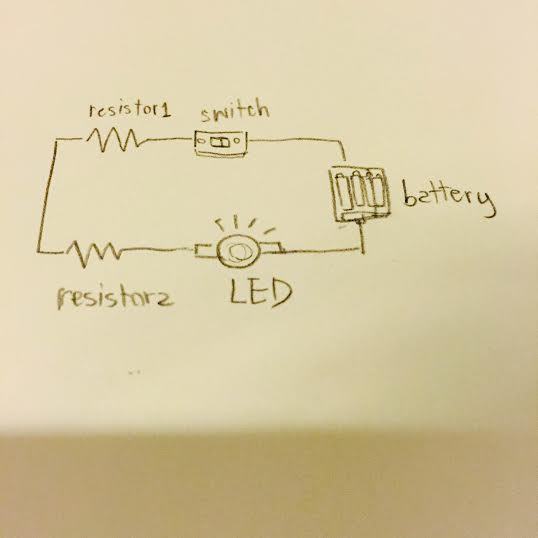 resistor1
switch
battery
resistor2
LED